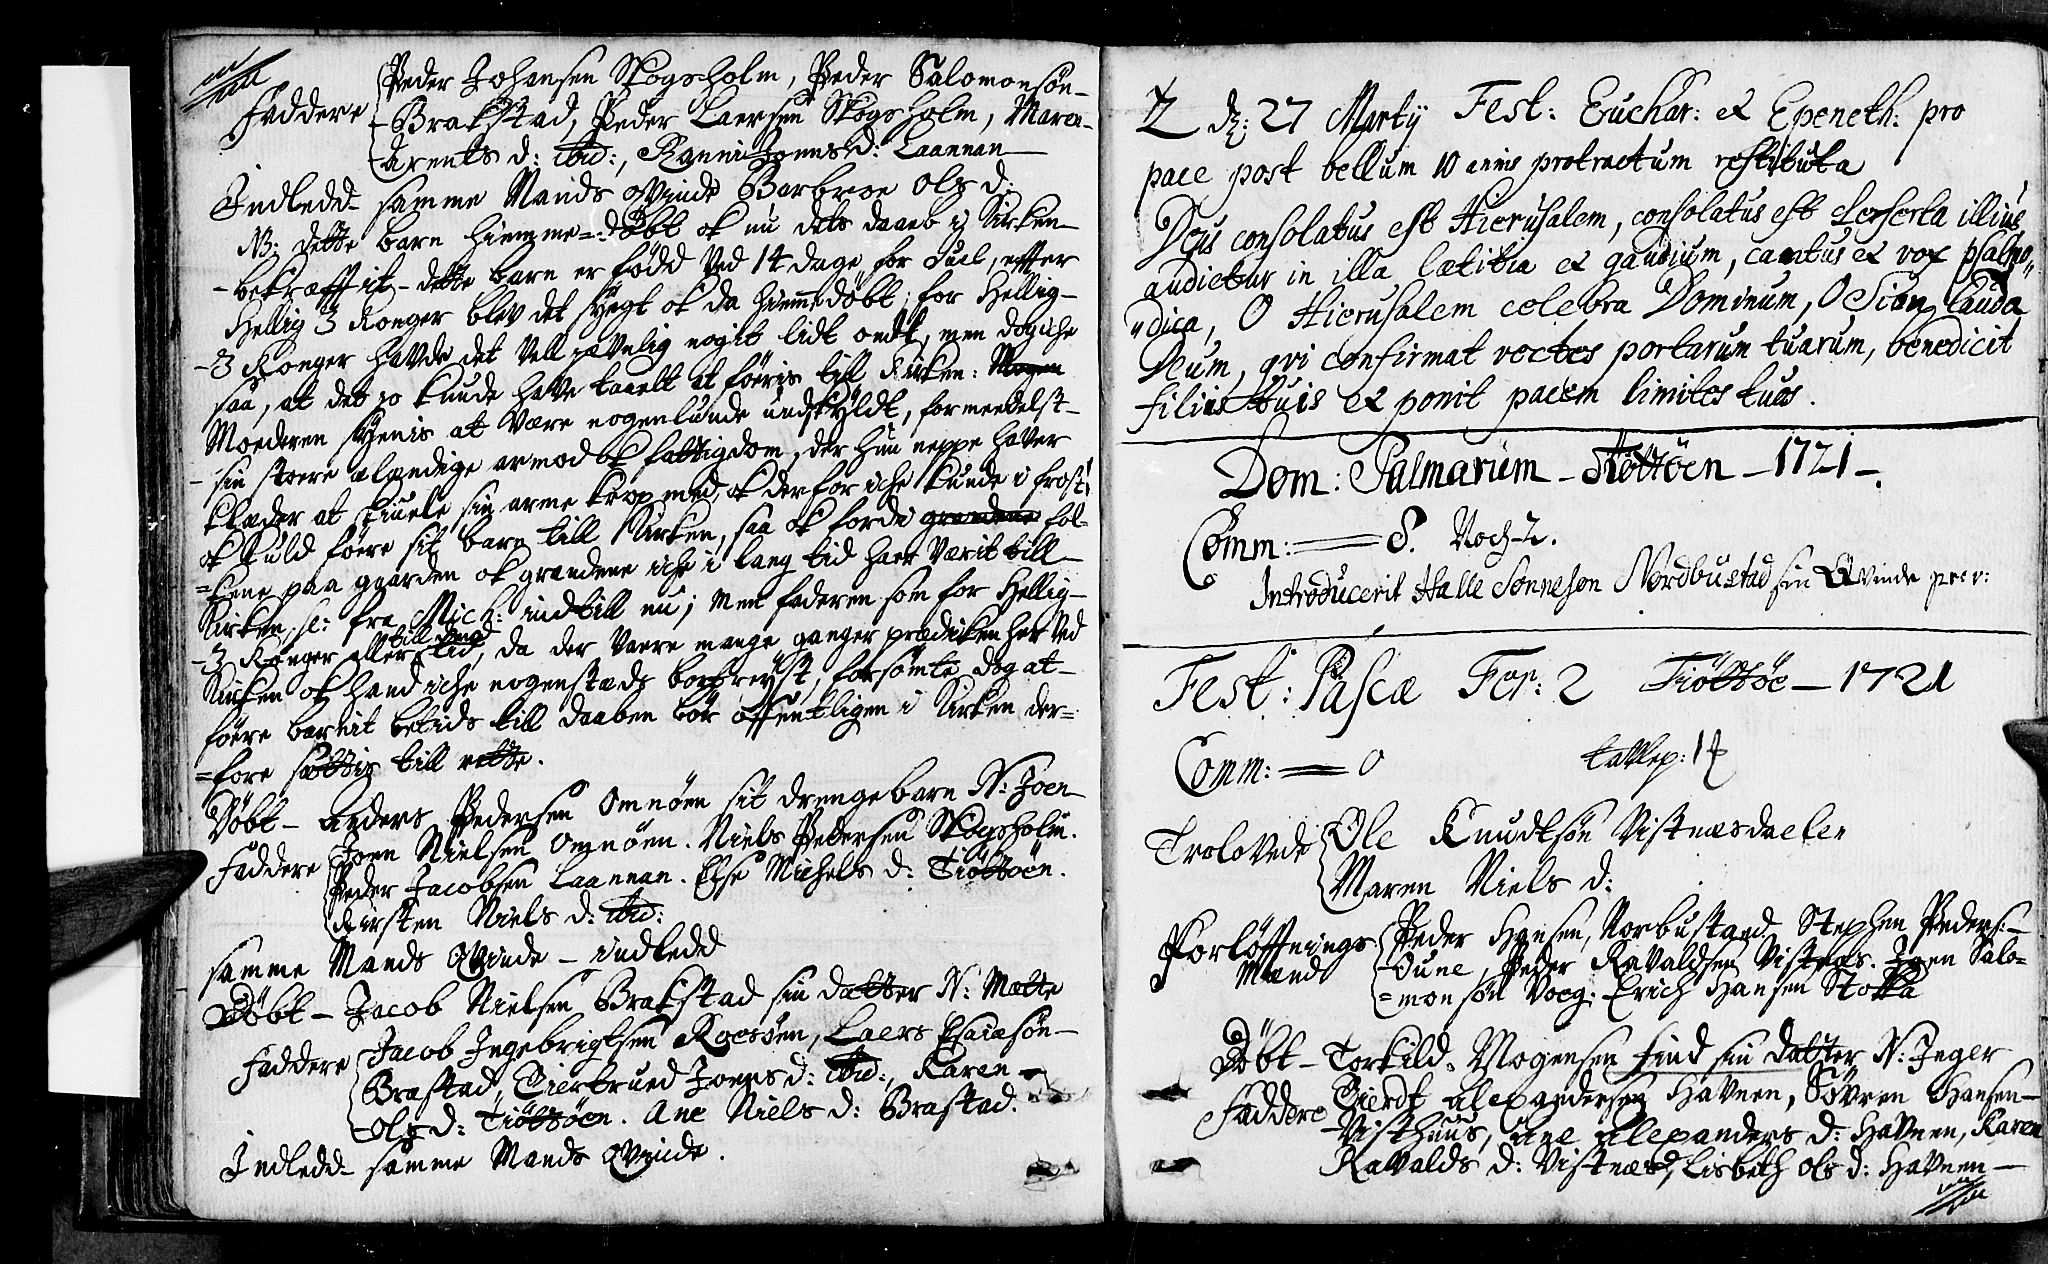 Faddere Peder Johansen Skogsholm, Peder Salomonsön
Brakstad, Peder Laersen Skogsholm, Maren
Arents d: ibid:, Ranni Joens d: Laannan
Indledd samme Mands qvinde Barbroe Ols d:
NB: dette barn hiemmedøbt ok nu dets daab i Kirken
bekræfftit - dette barn er född ved 14 dage for Juel, effter
Hellig 3 Konger blev det sygt ok da hiemmedöbt; for Hellig
3 Konger havde det vell jævnlig nogit lidt ondt, men dog iche
saa, at det jo kunde have taaelt at föeris till Kirken:
Moederen synis at være nogenlunde undskyldt, formedelst
sin stoere elændige armod ok fattigdom, der hun neppe haver
klæder at skiuele sin arme krop med, ok derfor iche kunde i frost
ok kuld föere sit barn till Kirken, saa ok fordi grandene fol-
kene paa gaarden ok grandene iche i lang tid har værit till
Kirken, sc: fra Mich: indtill nu; men faderen som for Hellig
3 Konger eller till dend tid, da der vaere mange ganger prædiken her ved
Kirken ok hand iche nogenstæds bortreyst, forsömte dog at
föere barnit betids till daaben bör offentligen i Kirken der-
fore sættis till rette.
Döbt - Anders Pedersen Omnöen sit drengebarn N: Joen
Faddere Joen Nielsen Omnöen. Niels Pedersen Skogsholm.
Peder Jacobsen Laannan. Else Michels d: Tiöttöen.
Kirsten Niels d: ibid:
samme Mands Qvinde - indledd
Döbt - Jacob Nielsen Brakstad sin datter N: Mætte
Faddere Jacob Ingebrigtsen Roesöen, Laers Esaiæsön
Brastad, Giertrued Joens d: ibid:, Karen
Ols d: Tiöttöen. Ane Niels d: Brastad.
Indledd samme Mands Qvinde.
d: 27 Martij Fest: Euchar: et Epeneth: pro
pace post bellum 10 annis protractum restituta
Deus consolatus est Hierusalem, consolatus est deserta illius
audietur in illa lætitia et gaudium, cantus et vox psalmo-
dica, O Hierusalem celebra Dominum, O Sion lauda
Deum, qvi confirmat vectes portarum tuarum, benedicit
filiis tuis et ponit pacem limites tuos.
Dom: Palmarum - Tiøttöen - 1721 -
Comm: — 8. Noch 2.
Introducerit Halle Sönnesön Nordbustad sin Qvinde
Fest: Pascæ Fer: 2 Tiöttöe - 1721
Comm: — 0 Tavlep: 14
Trolovede Ole Knudtsön Vistnæsdaelen
Maren Niels d:
Forlöffnings Peder Hansen, Norbustaed, Stephen Peders:
Mænd Oune, Peder Ravaldsen Vistnæs. Joen Salo-
monsön Voeg: Erich Hansen Stokka
Döbt - Torkild Mogensen find sin datter N: Inger
Faddere Gierdt Alexandersen Havnen, Sövren Hansen
Visthuus, Ane Alexanders d: Havnen, Karen
Ravalds d: Vistnæs, Lisbeth Ols d: Havnen